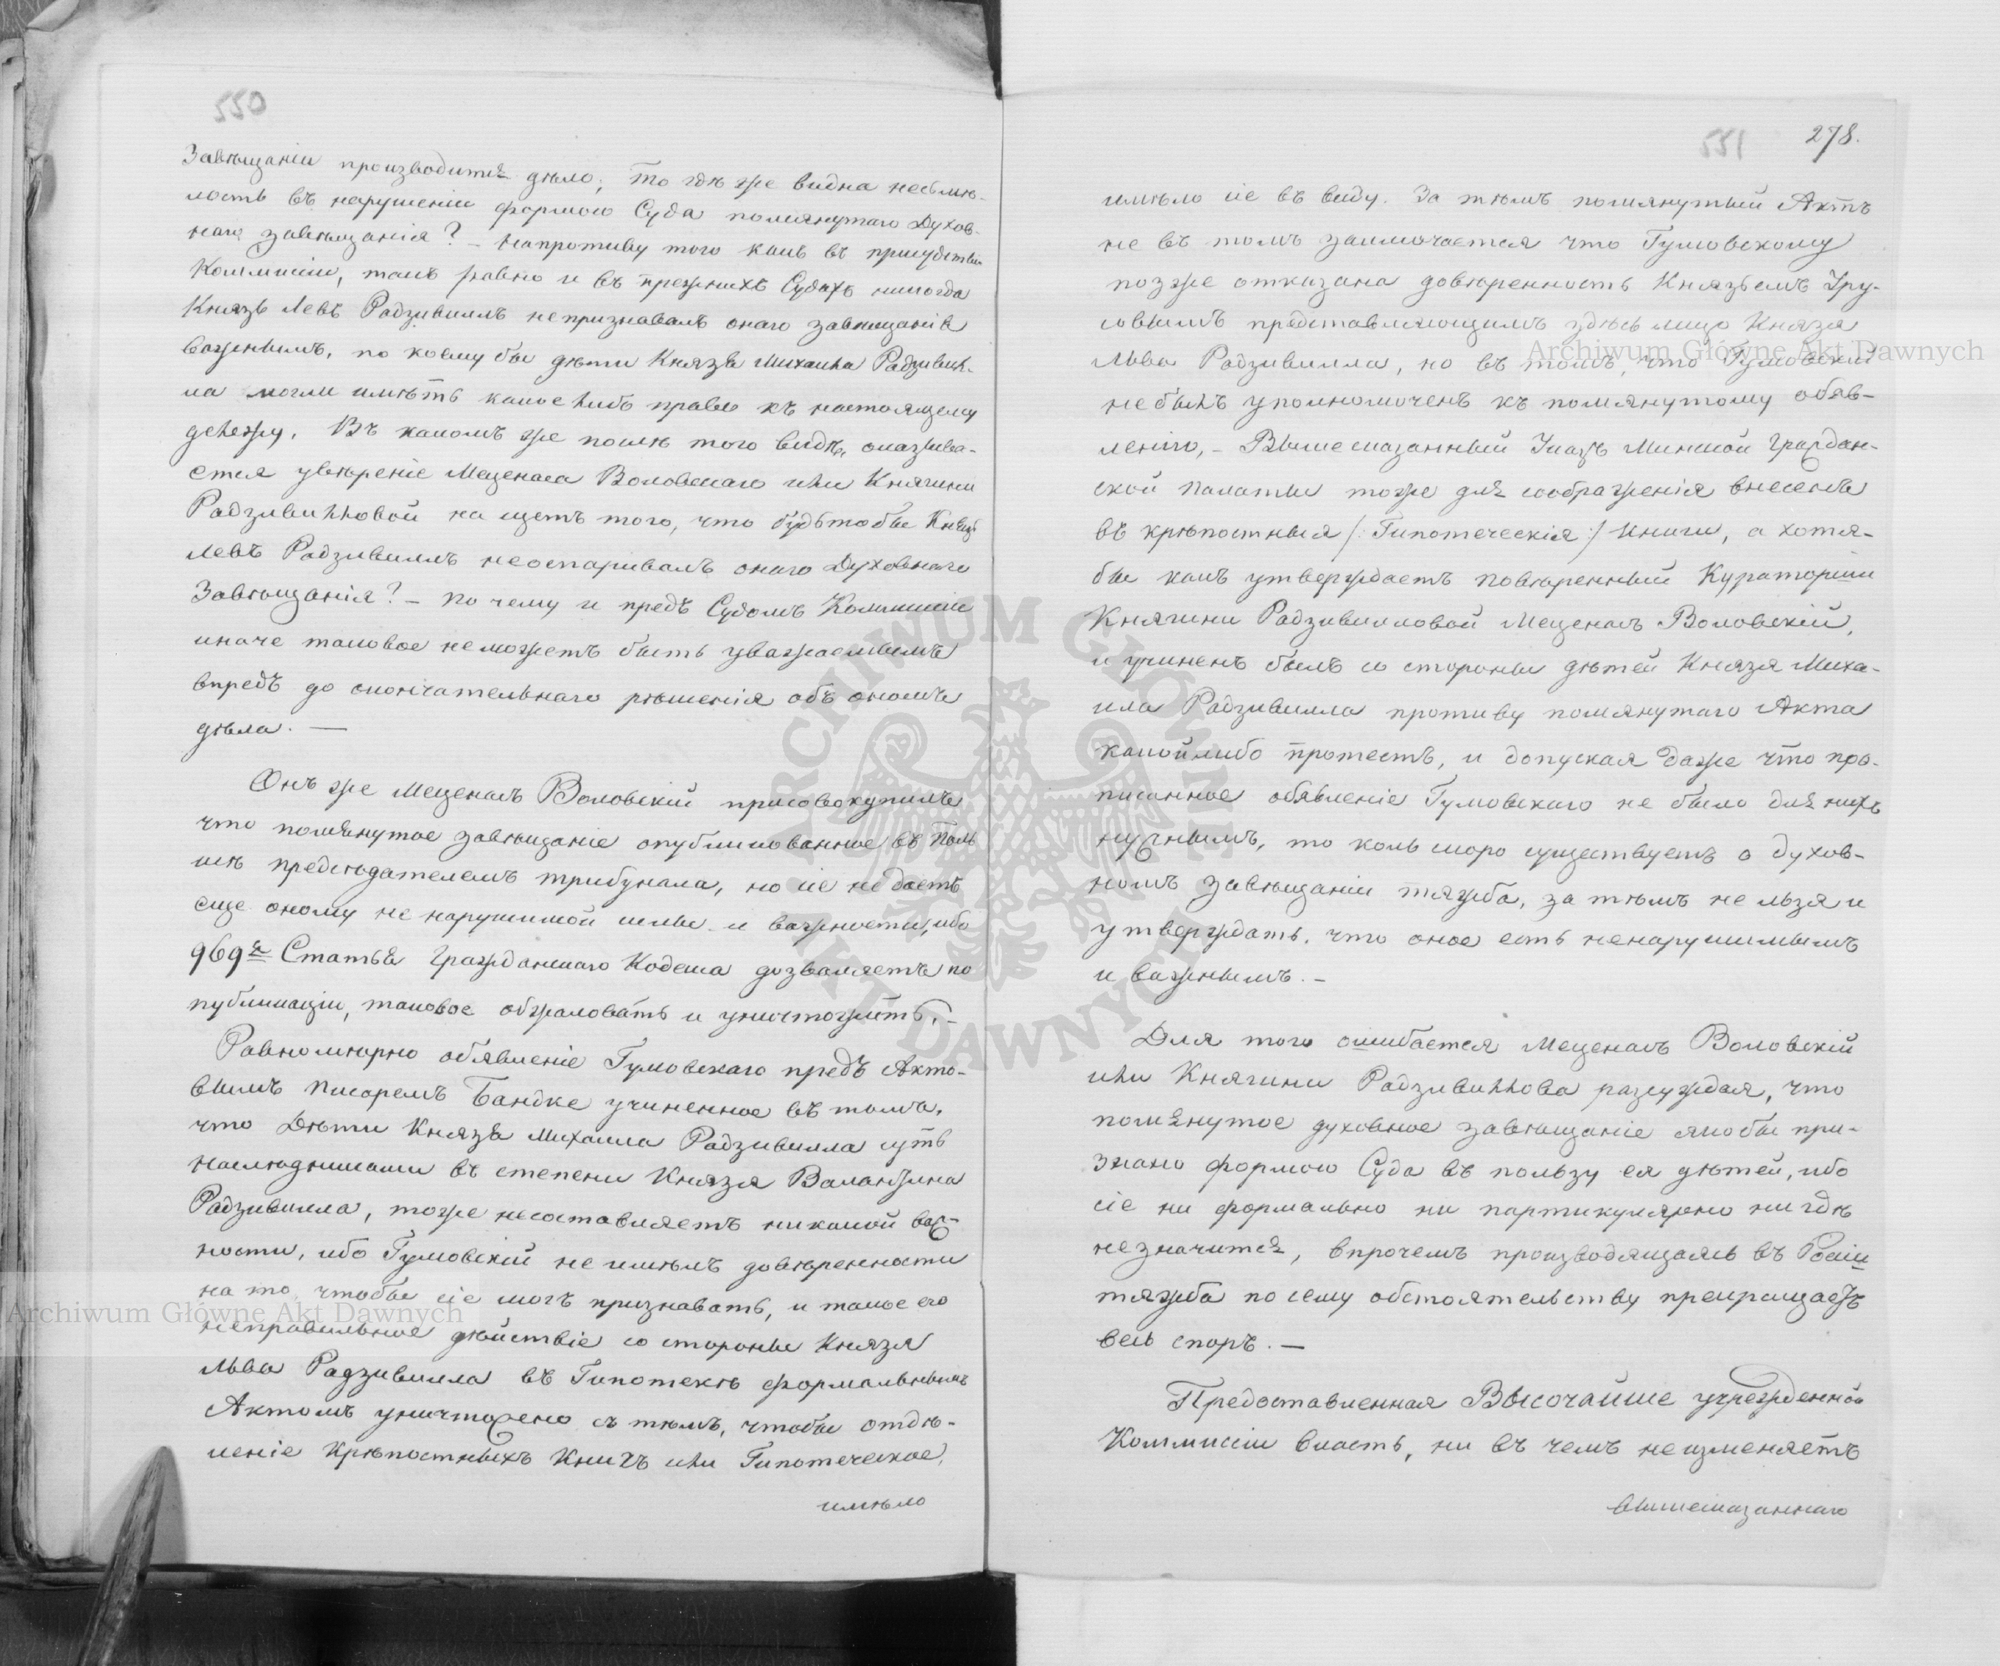 550
Завѣщаніи производится дѣло, то гдѣ же видна несмѣ-
лость въ нарушеніи формою Суда помянутаго Духов-
наго завѣщанія? – Напротиву того какъ въ присудствіи
Коммисіи, такъ равно и въ прежнихъ Судахъ никогда
Князь Левъ Радзивиллъ непризнавалъ онаго завѣщанія
важнымъ, по коему бы дѣти Князя Михаила Радзивил-
ла могли имѣть какое либо право къ настоящему
денежу. Въ какомъ же послѣ того видѣ, оказыва-
ется увѣреніе Меценаса Воловскаго или Княгини
Радзивилловой на щетъ того, что будьто бы Князь
Левъ Радзивиллъ неоспаривалъ онаго Духовнаго
Завѣщанія? – По чему и предъ Судомъ Коммисіи
иначе таковое неможетъ быть уважаемымъ
впредъ до окончательнаго рѣшенія объ ономъ
дѣла. —
Онъ же Меценасъ Воловскій присовокупилъ
что помянутое завѣщаніе опубликованное въ Поль
шѣ предсѣдателемъ трибунала, но сіе недаетъ
еще оному не нарушимой силы и важности, ибо
969я Статья Гражданскаго Кодекса дозваляетъ по
публикаціи, таковое обжаловать и уничтожить. –
Равномѣрно обявленіе Гумовскаго предъ Акто-
вымъ Писаремъ Бандке учиненное въ томъ,
что Дѣти Князя Михаила Радзивилла суть
наслѣдниками въ степени Князя Валантина
Радзивилла, тоже несоставляетъ никакой важ-
ности, ибо Гумовскій неимѣлъ довѣренности
на то, чтобы сіе могъ признавать, и такое его
неправильное дѣйствіе со стороны Князя
Льва Радзивилла въ Гипотекѣ формальнымъ
Актомъ уничтожено съ тѣмъ, чтобы отдѣ-
леніе Крѣпостныхъ Книгъ или Гипотеческое,
имѣло
551
278.
имѣло сіе въ виду. За тѣмъ помянутый Актъ
не въ томъ заключается что Гумовскому
позже отказана довѣренность Княземъ Уру-
совымъ представляющимъ здѣсь лицо Князя
Льва Радзивилла, но въ томъ, что Гумовскій
не былъ уполномоченъ къ помянутому обяв-
ленію, – Вышесказанный Указъ Минской Граждан-
ской Палаты тоже для соображенія внесенъ
въ крѣпостныя /: Гипотеческія :/ книги, а хотя-
бы какъ утверждаетъ повѣренный Кураторіи
Княгини Радзивилловой Меценасъ Воловскій,
и учиненъ былъ со стороны дѣтей Князя Миха-
ила Радзивилла противу помянутаго Акта
какойлибо протестъ, и допуская даже что про-
писанное обявленіе Гумовскаго не было для нихъ
нужнымъ, то коль скоро существуетъ о духов-
номъ завѣщаніи тяжба, за тѣмъ не льзя и
утверждать, что оное есть ненарушимымъ
и важнымъ. –
Для того ошибается Меценасъ Воловскій
или Княгини Радзивиллова разсуждая, что
помянутое духовное завѣщаніе якобы при-
знано формою Суда въ пользу ея дѣтей, ибо
сіе ни формально ни партикулярно нигдѣ
незначится, впрочемъ производящаясь въ Россіи
тяжба по сему обстоятельству прекращаетъ
весь споръ. —
Предоставленная Высочайше учрежденной
Коммисіи власть, ни въ чемъ неизменяетъ
вышесказаннаго
Archiwum Główne Akt Dawnych
Archiwum Główne Akt Dawnych
ARCHIWUM GŁÓWNE AKT DAWNYCH